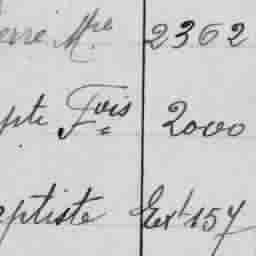 erre Mre 2362
pte Fois 2000
aptiste Ext 157